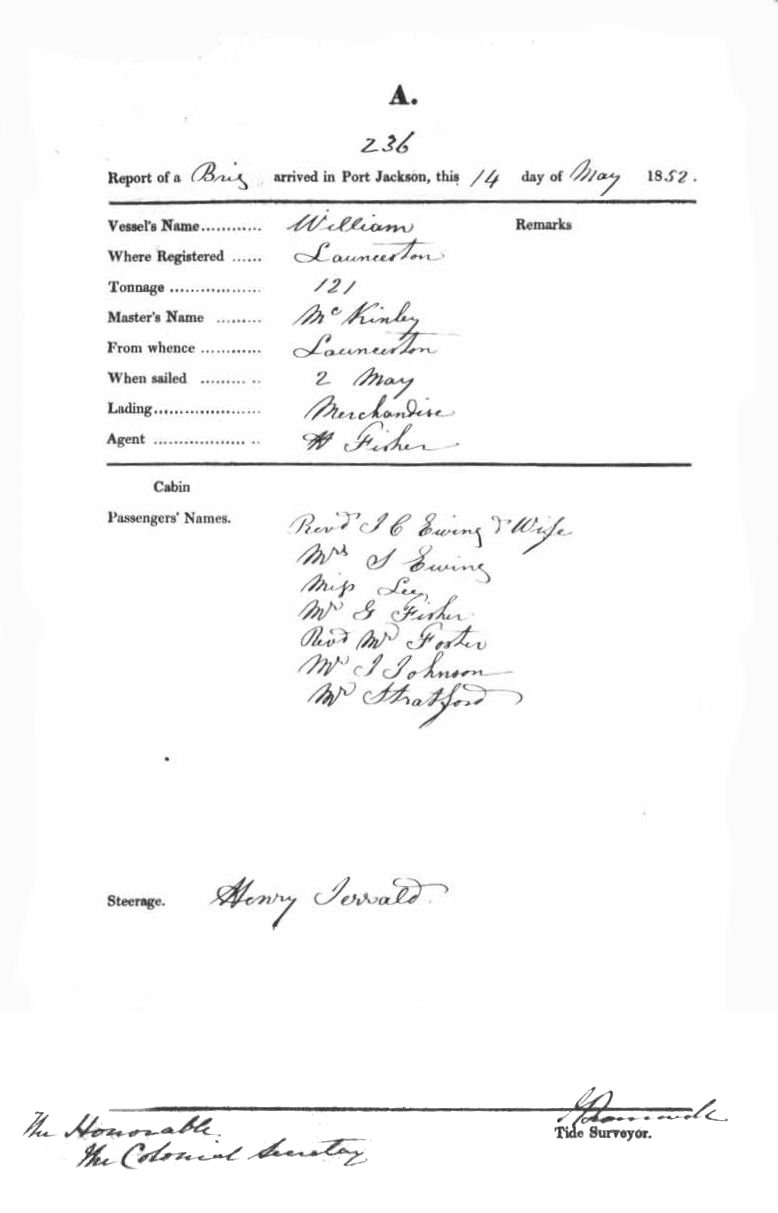 A.
236
Report of a Brig arrived in Port Jackson, this 14 day of May 1852.
Vessel's Name............ William Remarks
Where Registered ...... Launceston
Tonnage .................. 121
Master's Name ......... McKinley
From whence ............ Launceston
When sailed ......... .. 2 May
Lading..................... Merchandise
Agent .................. .. H Fisher
Cabin
Passengers' Names. Revd I C Ewing & Wife
Mrs S Ewing
Miss Lee
Mr G Fisher
Revd Mr Foster
Mr I Johnson
Mr Stratford
Steerage. Henry Jerrald
The Honorable
The Colonial Secretary
Tide Surveyor.